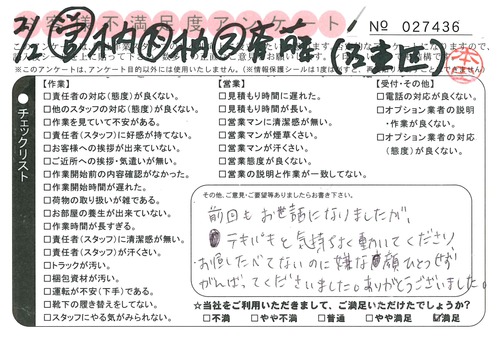 お客様不満足度アンケート
№ 027436
2/2 営 柄 作 柄 2 斎藤 (江東区)
※このアンケートは、アンケート目的以外には使用いたしません。(※情報保護シールは1度はがすと、
チェックリスト
【作業】
□責任者の対応(態度)が良くない。
□他のスタッフの対応(態度)が良くない。
□作業を見ていて不安がある。
□責任者(スタッフ)に好感が持てない。
□お客様への挨拶が出来ていない。
□ご近所への挨拶・気遣いが無い。
□作業開始前の内容確認がなかった。
□作業開始時間が遅れた。
□荷物の取り扱いが雑である。
□お部屋の養生が出来ていない。
□作業時間が長すぎる。
□責任者(スタッフ)に清潔感が無い。
□責任者(スタッフ)が汗くさい。
□トラックが汚い。
□梱包資材が汚い。
□運転が不安(下手)である。
□靴下の履き替えをしてない。
□スタッフにやる気がみられない。
【営業】
□見積もり時間に遅れた。
□見積もり時間が長い。
□営業マンに清潔感が無い。
□営業マンが煙草くさい。
□営業マンが汗くさい。
□営業態度が良くない。
□営業の説明と作業が一致してない。
【受付・その他】
□電話の対応が良くない。
□オプション業者の説明
・作業が良くない。
□オプション業者の対応
(態度)が良くない。
その他、ご意見・ご要望等ありましたらお書き下さい。
前回もお世話になりましたが、
テキパキと気持ちよく動いてくださり、
お願いしたべてないのに嫌な顔ひとつせず
がんばってくださいました。ありがとうございました。
☆当社をご利用いただきまして、ご満足いただけたでしょうか?
□不満 □やや不満 □普通 □やや満足 ☑満足